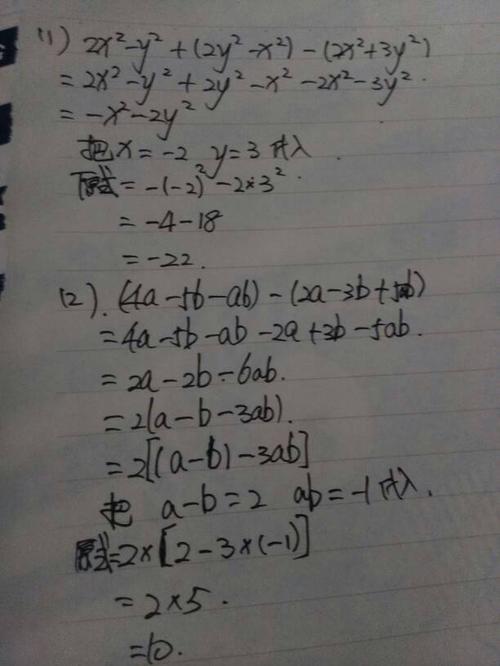 (1) 2x²-y²+(2y²-x²)-(2x²+3y²)
=2x²-y²+2y²-x²-2x²-3y².
=-x²-2y²
把x=-2 y=3代入.
原式=-(-2)²-2×3².
=-4-18
=-22.
(2).(4a-5b-ab)-(2a-3b+5ab)
=4a-5b-ab-2a+3b-5ab.
=2a-2b-6ab.
=2(a-b-3ab).
=2[(a-b)-3ab]
把 a-b=2 ab=-1代入.
原式=2×[2-3×(-1)]
=2×5.
=10.